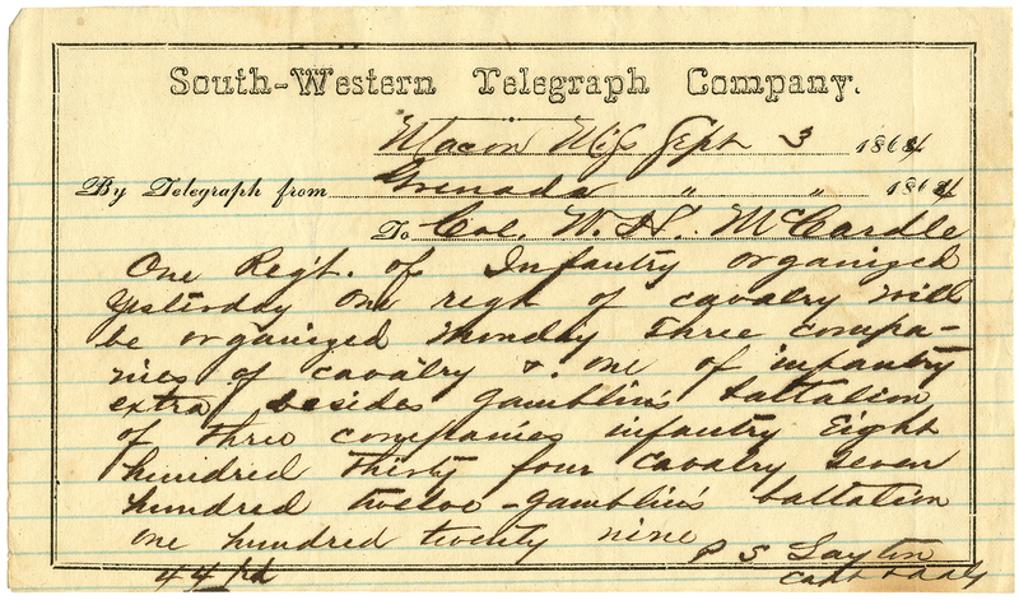 South-Western Telegraph Company.
Macon Miss Sept 3 1864
By Telegraph from Grenada " " 1864
To Col. W. H. McCardle
One Regt. of Infantry organized
yesterday one regt of cavalry will
be organized Monday Three compa-
nies of cavalry &. one of infantry
extra besides Gamblin's battalion
of three companies infantry Eight
hundred thirty four cavalry Seven
hundred twelve - Gamblin's battalion
one hundred twenty nine
P S Layton
44 pd
Capt & AAG